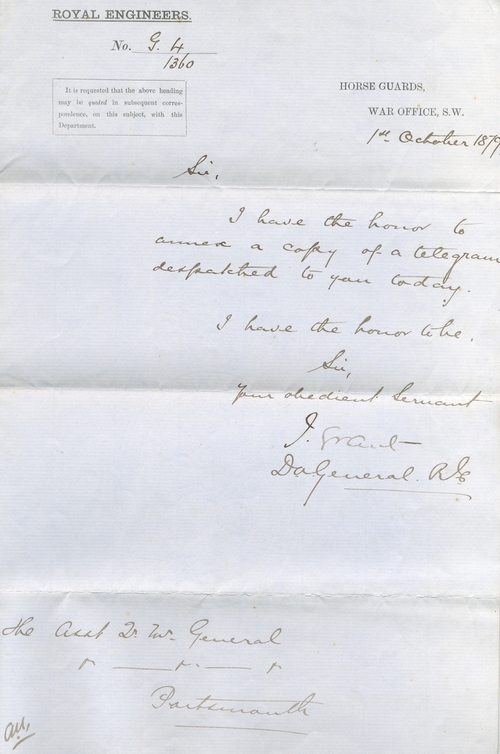 ROYAL ENGINEERS.
No. G. 4
1360
It is requested that the above heading
may be quoted in subsequent corres-
pondence, on this subject, with this
Department.
HORSE GUARDS,
WAR OFFICE, S.W.
1st October 1879
Sir,
I have the honor to
annex a copy of a telegram
despatched to you today.
I have the honor to be,
Sir,
Your obedient Servant
J. Grant
DaGeneral. R.E
The Asst Qr. Mr. General
Portsmouth